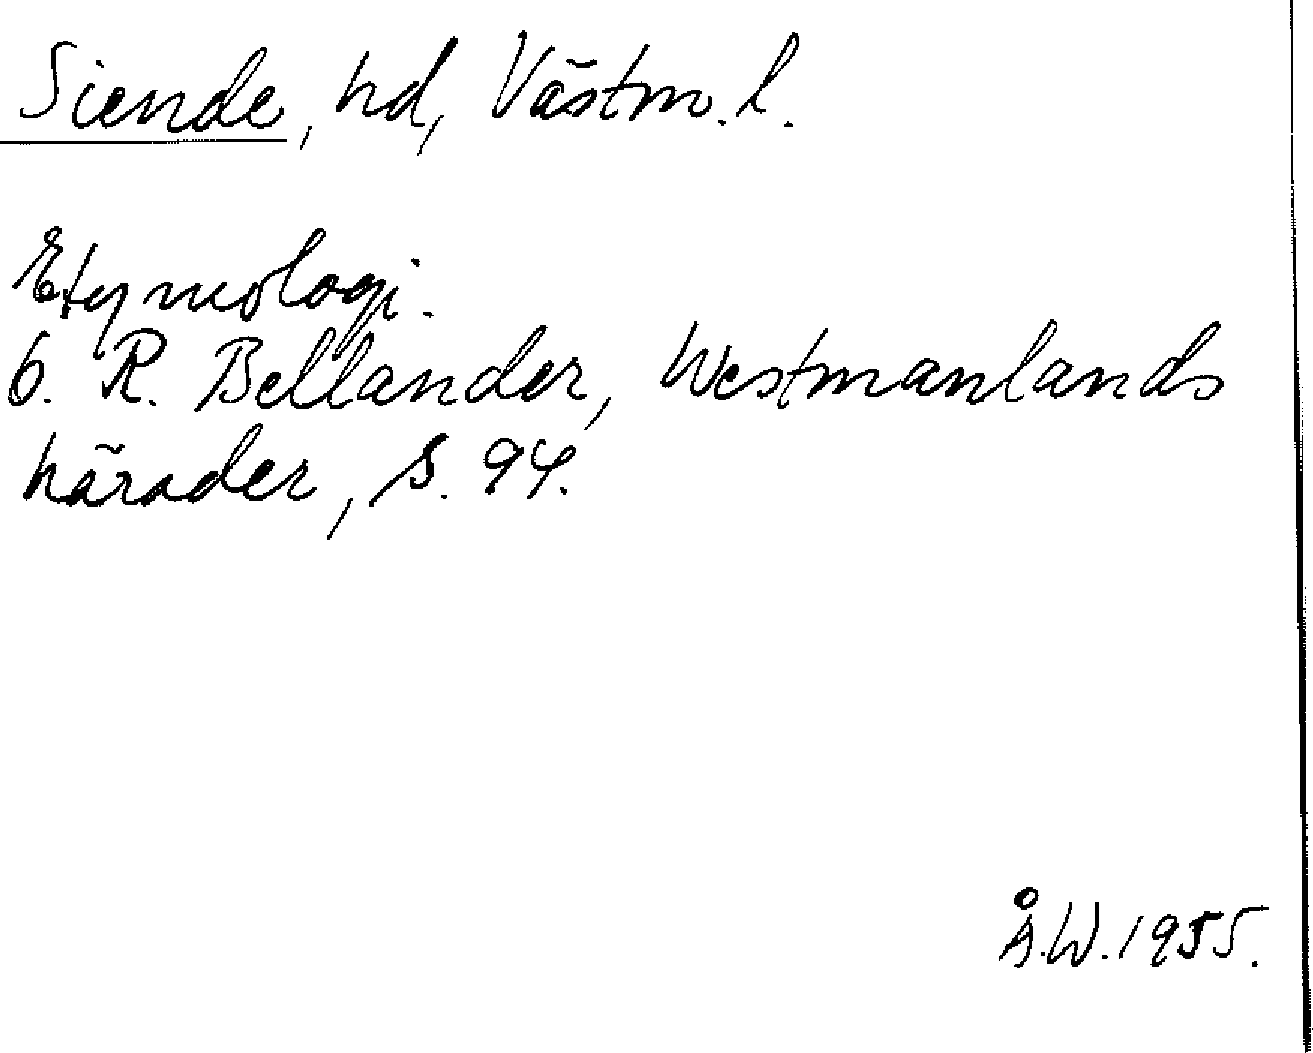 Siende, hd, Västm. l.
Etymologi.
G. R. Bellander, Westmanlands
härader, s. 94.
Å.W. 1955.